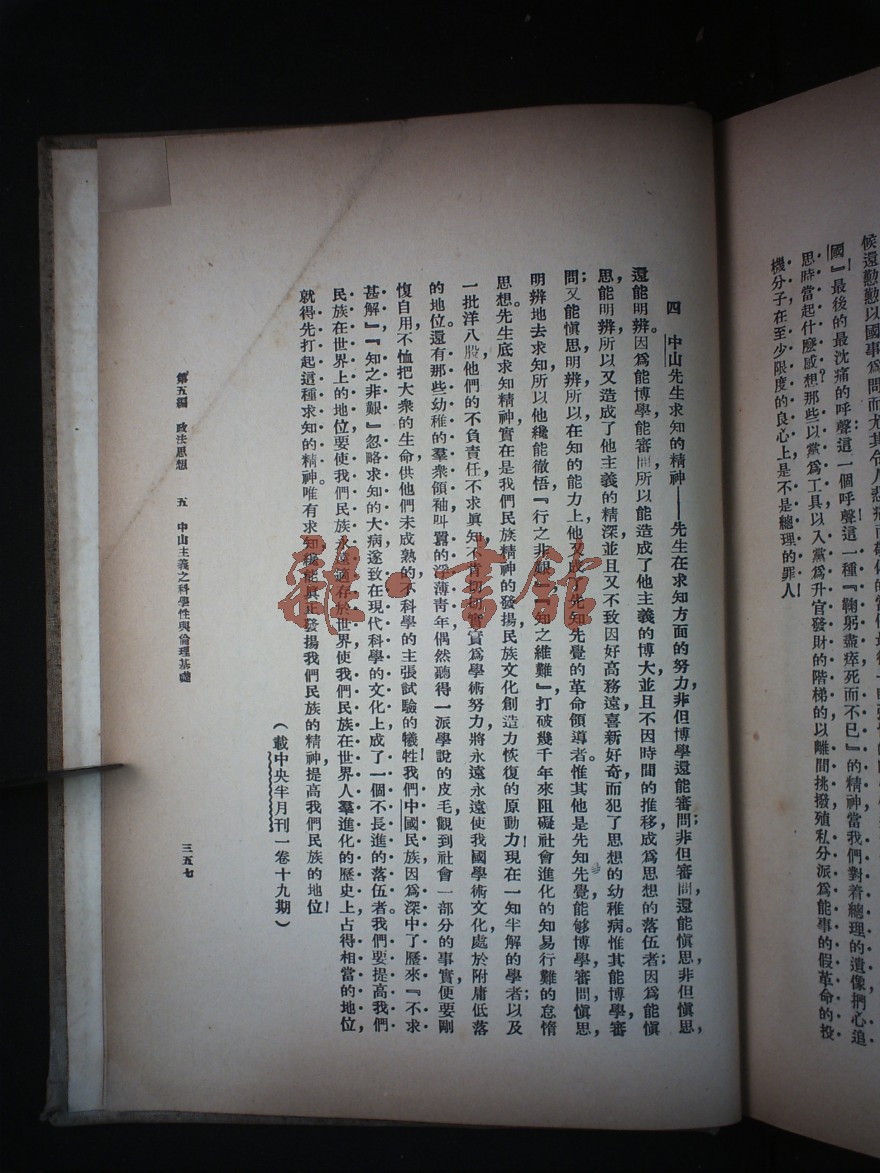 國』最後的最沈痛的呼聲!這一個呼聲,這一種『鞠躬盡瘁死而不已』的精神!當我們對着總理的遺像捫心追
思時當起什麼感想?那些以黨爲工具以入黨爲升官發財的階梯的以離間挑撥殖私分派爲能事的假革命的投
機分子,在至少限度的良心上是不是總理的罪人!
四 中山先生求知的精神——先生在求知方面的努力,非但博學,還能審問;非但審問,還能愼思;非但愼思,
還能明辨。因爲能博學能審問,所以能造成了他主義的博大,並且不因時間的推移,成爲思想的落伍者;因爲能愼
思,能明辨,所以又造成了他主義的精深,並且又不致因好高務遠喜新好奇而犯了思想的幼稚病。惟其能博學審
問;又能愼思明辨,所以在知的能力上他又成了先知先覺的革命領導者。惟其他是先知先覺,能够博學,審問,愼思,
明辨地去求知,所以他纔能徹悟『行之非艱』,『知之維難』,打破幾千年來阻礙社會進化的知易行難的怠惰
思想。先生底求知精神,實在是我們民族精神的發揚,民族文化創造力恢復的原動力!現在一知半解的學者;以及
一批洋八股,他們的不負責任,不求眞知,不肯切切實實爲學術努力,將永遠永遠使我國學術文化,處於附庸低落
的地位。還有那些幼稚的羣衆領袖,叫囂的浮薄靑年,偶然聽得一派學說的皮毛,觀到社會一部分的事實,便要剛
愎自用,不恤把大衆的生命,供他們未成熟的不科學的主張試驗的犧牲!我們中國民族,因爲深中了歷來『不求
甚解』『知之非艱』忽略求知的大病,遂致在現代科學的文化上成了一個不長進的落伍者。我們要提高我們
民族在世界上的地位,要使我們民族永遠適存於世界,使我們民族在世界人羣進化的歷史上占得相當的地位,
就得先打起這種求知的精神。唯有求知纔能眞正發揚我們民族的精神,提高我們民族的地位!
(載中央半月刊一卷十九期)
第五編 政法思想 五 中山主義之科學性與倫理基礎
三五七